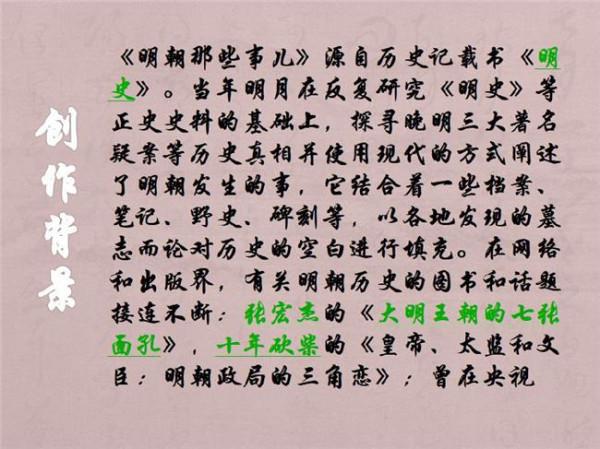 创作背景
《明朝那些事儿》源自历史记载书《明
史》。当年明月在反复研究《明史》等
正史史料的基础上，探寻晚明三大著名
疑案等历史真相并使用现代的方式阐述
了明朝发生的事，它结合着一些档案、
笔记、野史、碑刻等，以各地发现的墓
志而论对历史的空白进行填充。在网络
和出版界，有关明朝历史的图书和话题
接连不断：张宏杰的《大明王朝的七张
面孔》，十年砍柴的《皇帝、太监和文
臣：明朝政局的三角恋》；曾在央视